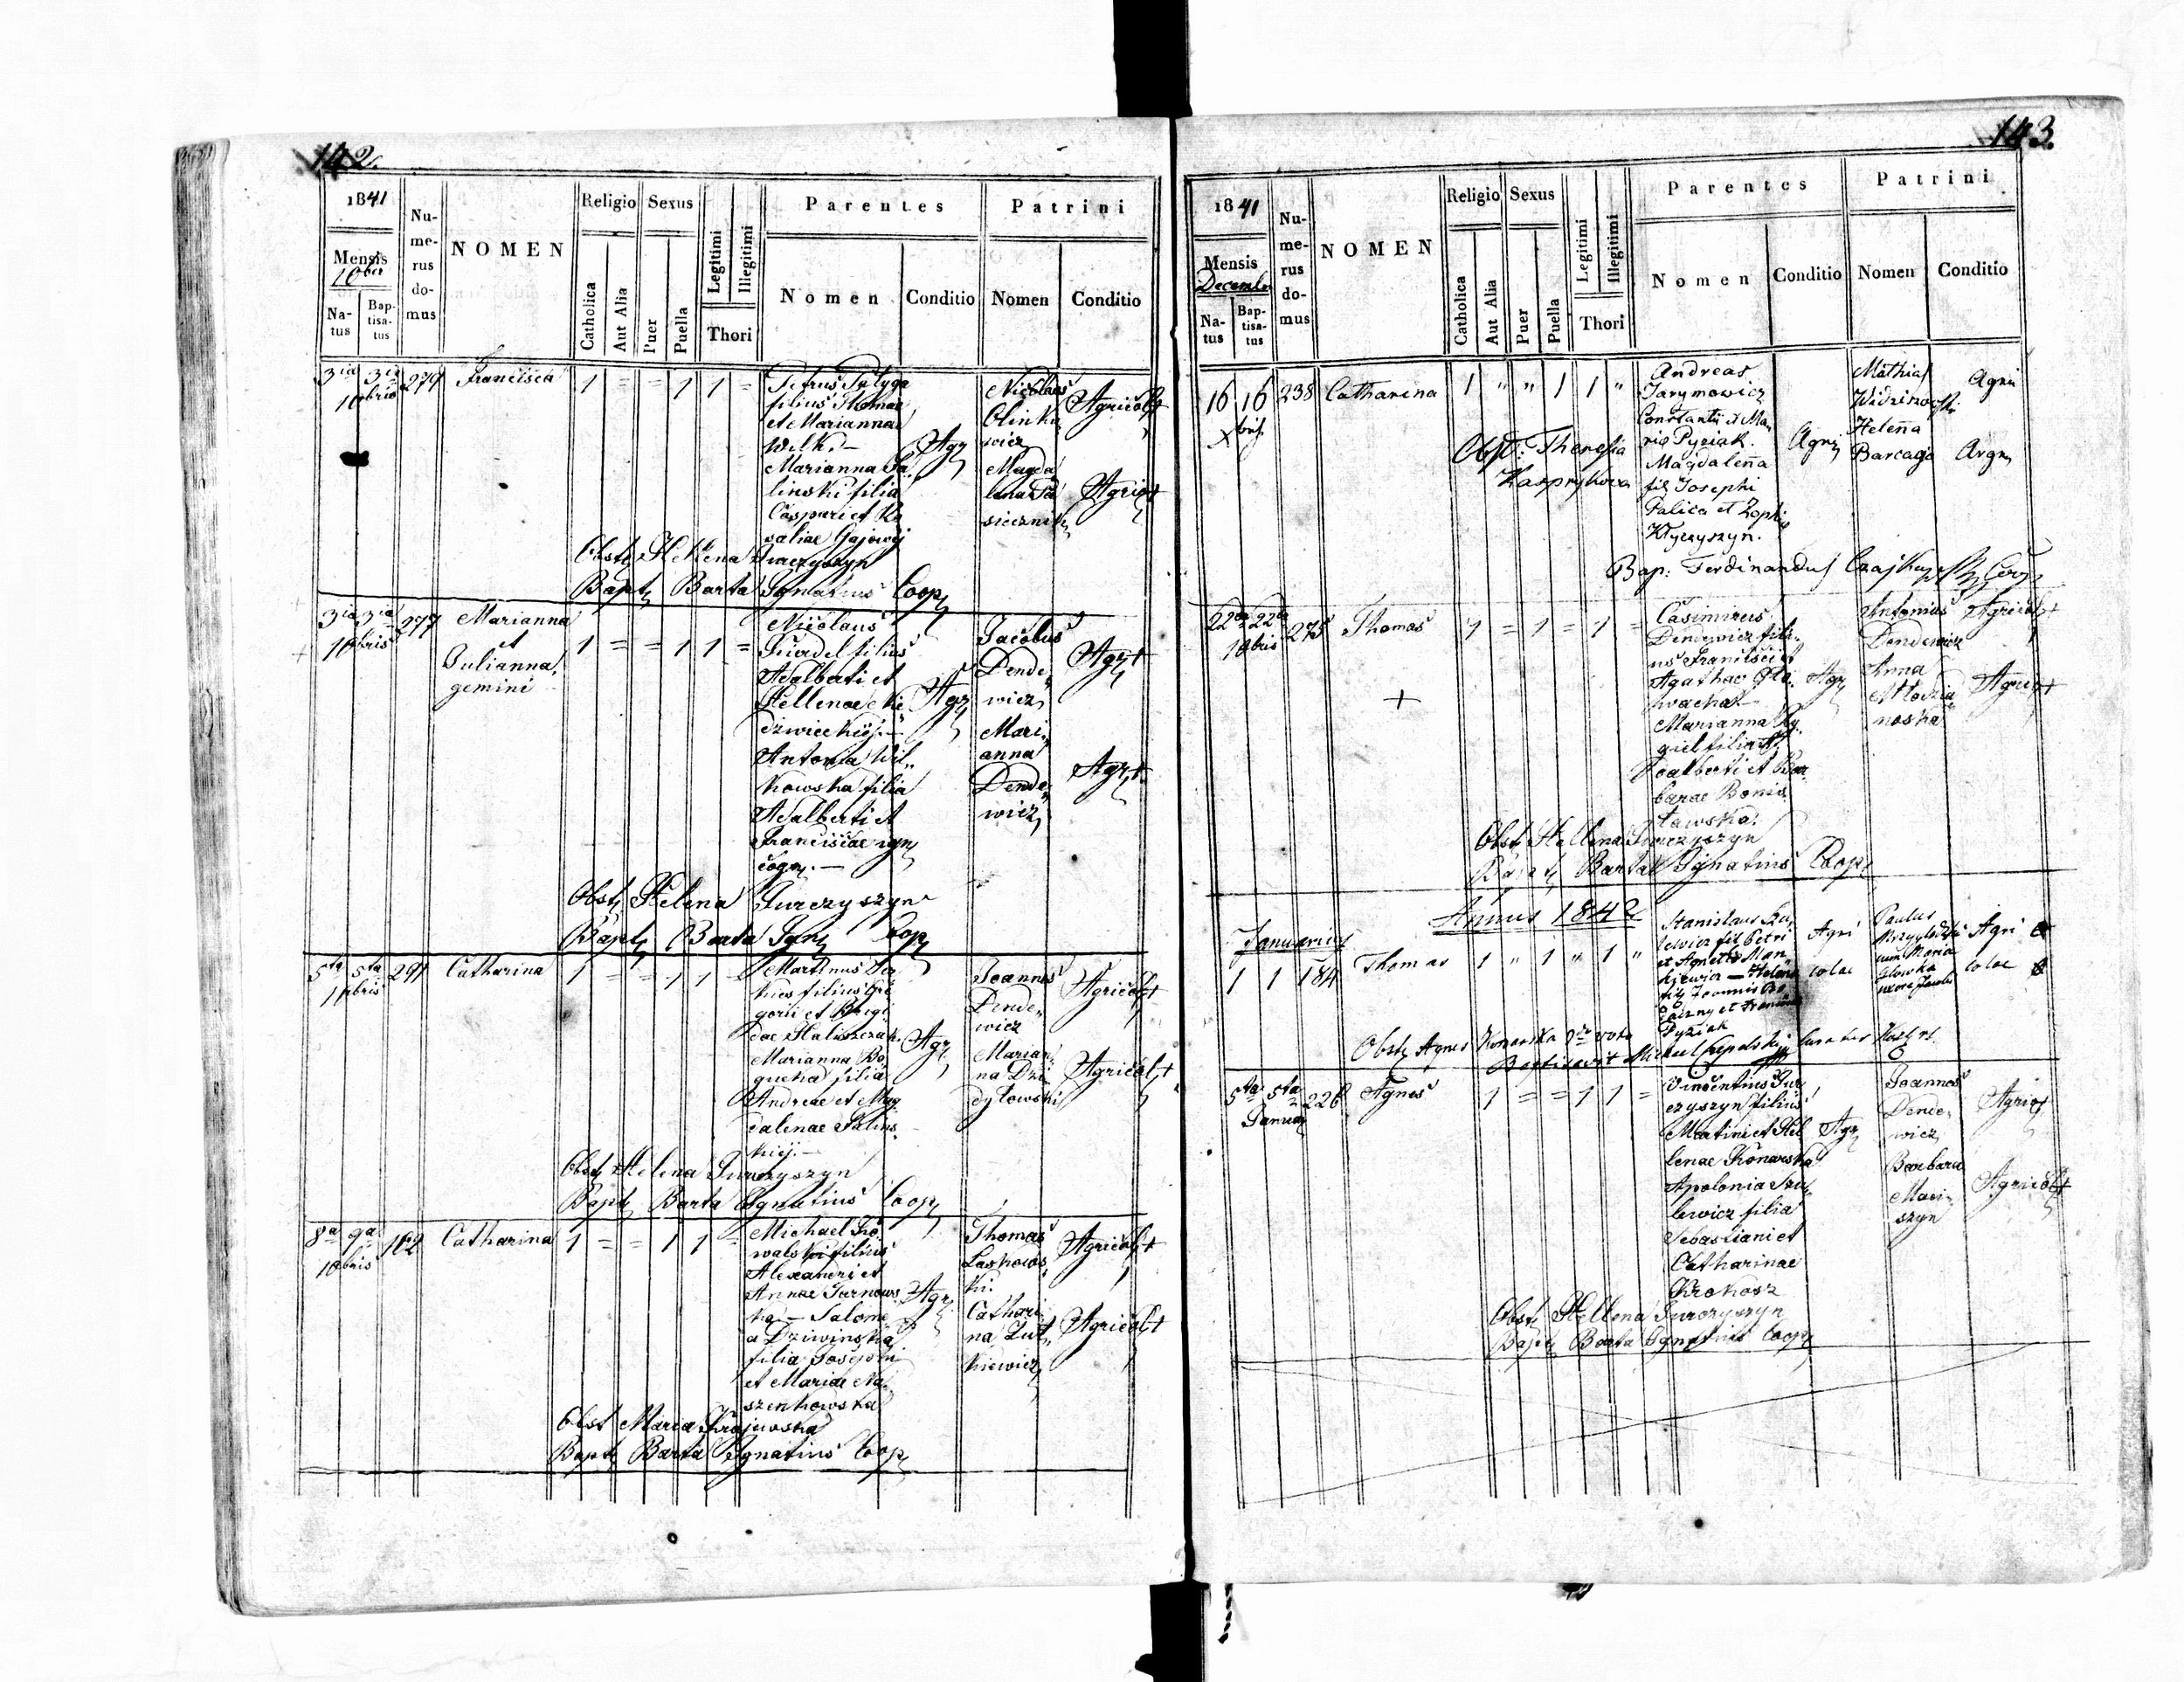 142.
1841
Mensis
10ber
Na-
tus
Bap-
tisa-
tus
Nu-
me-
rus
do-
mus
NOMEN
Religio
Catholica
Aut Alia
Sexus
Puer
Puella
Legitimi
Illegitimi
Thori
Parentes
Nomen
Conditio
Patrini
Nomen
Conditio
3ia 3ia 279 Francisca 1 = = 1 1 =
10bris
filius Thomae
et Marianna
Wilk. — Agr
Marianna Sa
linski filia
Caspari et Ro
saliae Gajowy
Nicolaus
Olinke
wicz
Magda
lena Pa
siecznik
Agricol
Agric
Obst Hellena Jurczyszyn
Bapt Barta Ignatius Coop
3ia 3ia 277 Marianna 1 = = 1 1 =
10bris et
Julianna
gemini
Nicolaus
filius
Adalberti et
Hellenae Nie
dzwieckij. —
Antonia Wil„
kowska filia
Adalberti et
Franciscae
Agr
Jacobus
Dende„
wicz
Mari„
anna
Dende„
wicz
Agr
Agr
Obst Helena Jurczyszyn
Bapt Barta Ign Coop
5ta 5ta 291 Catharina 1 = = 1 1 =
10bris
Martinus
filius Gre
gorii et Brigi
dae Haliszczak.
Marianna Bo
gucka filia
Andreae et Mag
dalenae Salins
kiej. —
Agr
Joannes
Dende„
wicz
Marian
na Dzi
dylowski
Agricol
Agricol
Obst Helena Jurczyszyn
Bapt Barta Ignatius Coop
8a 9a 162 Catharina 1 = = 1 1 =
10bris
Michael Ko
walski filius
Alexandri et
Annae Tarnows
ka — Salome
a Dziwinska
filia Josephi
et Mariae Na
szenkowska
Agr
Thomas
Laskows
ki.
Cathari
na Lut„
kiewicz
Agricol
Agricol
Obst Maria Krajewska
Bapt Barta Ignatius Coop
143.
1841
Mensis
Decemb
Na-
tus
Bap-
tisa-
tus
Nu-
me-
rus
do-
mus
NOMEN
Religio
Catholica
Aut Alia
Sexus
Puer
Puella
Legitimi
Illegitimi
Thori
Parentes
Nomen
Conditio
Patrini
Nomen
Conditio
16 16 238 Catharina 1 " " 1 1 "
Andreas
Jarymowicz
Constantii et Ma
ria Pyziak.
Magdalena
fil Josephi
Palica et Zophia
Klyczyszyn.
Agri
Mathias
Helena
Barcaga
Agri
Obst: Theresia
Kasprykowa
Bap: Ferdinandus Coop
22da 22da 275 Thomas 1 = 1 = 1 =
10bris
Casimirus
Dendewicz fili„
us Francisci et
Agathae Gla
wacka —
Marianna Ry„
giel filia A
dalberti et Bar
barae Bonis
ławska.
Agr
Antonius
Dendewicz
Anna
Młodzia
noska
Agricol
Agric
Obst Hellena Jurczyszyn
Bapt Barta Ignatius Coop
Annus 1842
Januarius
1 1 184 Thomas 1 " 1 " 1 "
Stanislaus Szu
lewicz fil Petri
et Agnetis Man
kiewicz — Helena
fil Joannis
et
Pyziak
Agri
colae
Paulus
cum Maria
Glowka
uxore Jacobi
Agri
colae
Obst Agnes Konarska 2do voto
Baptisavit Michael curatus
5ta 5ta 226 Agnes 1 = = 1 1 =
Januar
Vincentius Jur
czyszyn filius
Martini et Hel
lenae Konarska
Apolonia Szu„
lewicz filia
Sebastiani et
Catharinae
Krokosz
Agr
Joannes
Dende„
wicz
Barbara
Maci„
szyn
Agric
Agricol
Obst Hellena Jurczyszyn
Bapt Barta Ignatius Coop